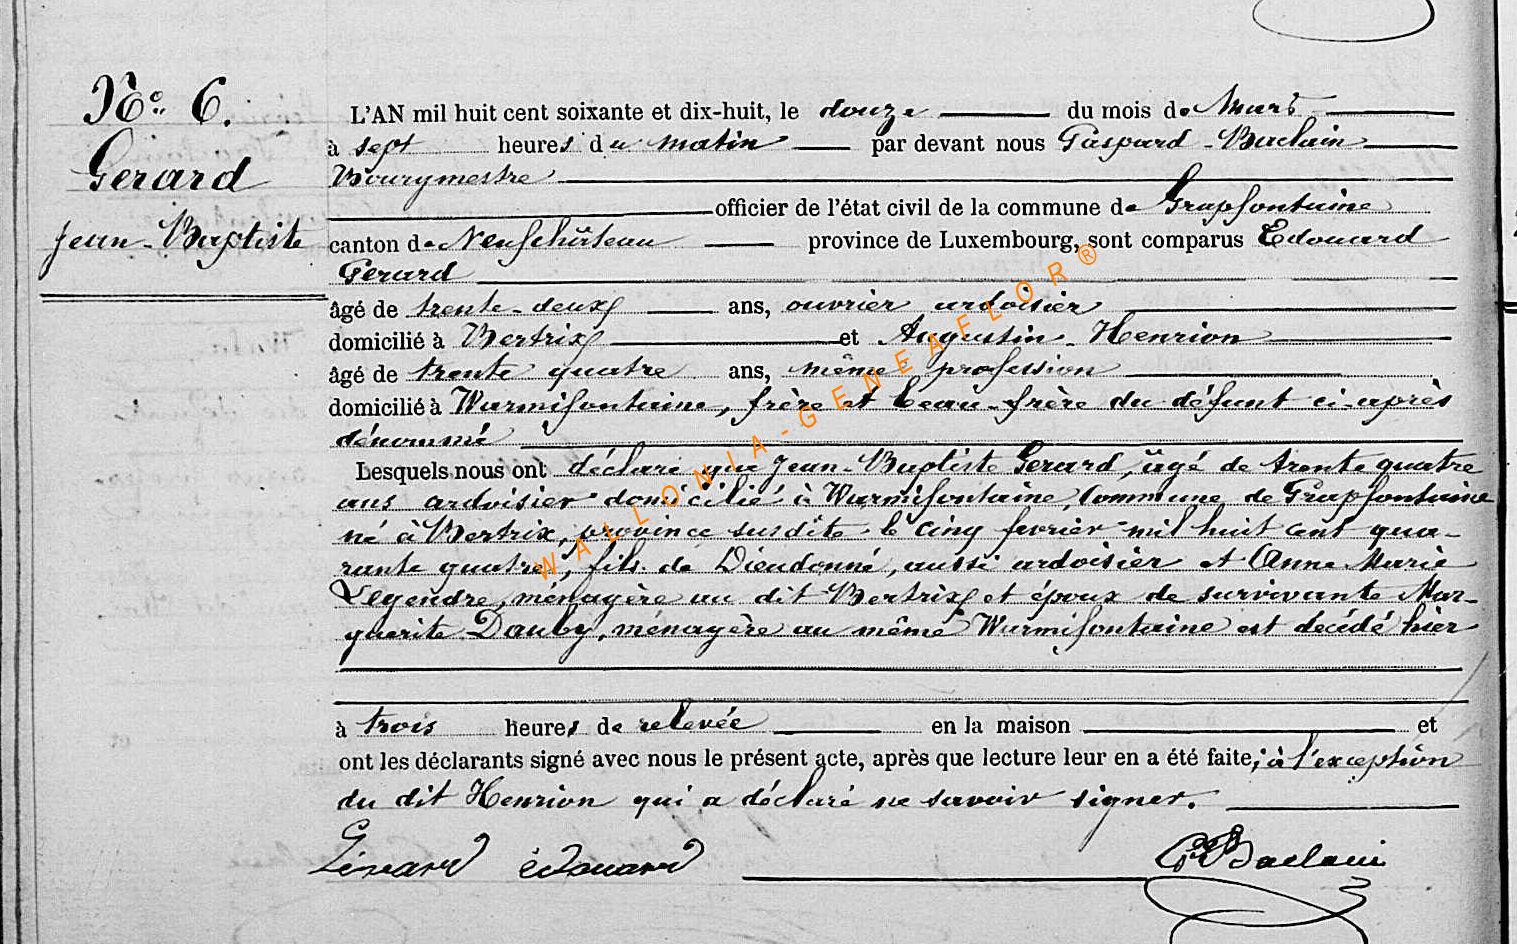 No. 6.
Gerard
Jean-Baptiste
L'AN mil huit cent soixante et dix-huit, le douze du mois de Mars
à sept heures du matin par devant nous Gaspard Baclain
Bourgmestre
officier de l'état civil de la commune de Grapfontaine
canton de Neufchâteau province de Luxembourg, sont comparus Edouard
Gerard
âgé de trente-deux ans, ouvrier ardoisier
domicilié à Bertrix et Augustin Henrion
âgé de trente quatre ans, même profession
domicilié à Warmifontaine, frère et beau-frère du défunt ci-après
dénommé
Lesquels nous ont déclaré que Jean-Baptiste Gerard, âgé de trente quatre
ans ardoisier domicilié à Warmifontaine, Commune de Grapfontaine
né à Bertrix, province susdite le cinq fevrier mil huit cent qua-
rante quatre, fils de Dieudonné, aussi ardoisier et Anne Marie
Legendre, ménagère au dit Bertrix et époux de survivante Mar-
guerite Dauby, ménagère au même Warmifontaine est décédé hier
à trois heures de relevée en la maison et
ont les déclarants signé avec nous le présent acte, après que lecture leur en a été faite, à l'exception
du dit Henrion qui a déclaré ne savoir signer.
Gérard édouard G. Baclain
WALLONIA-GENEAFLOR®